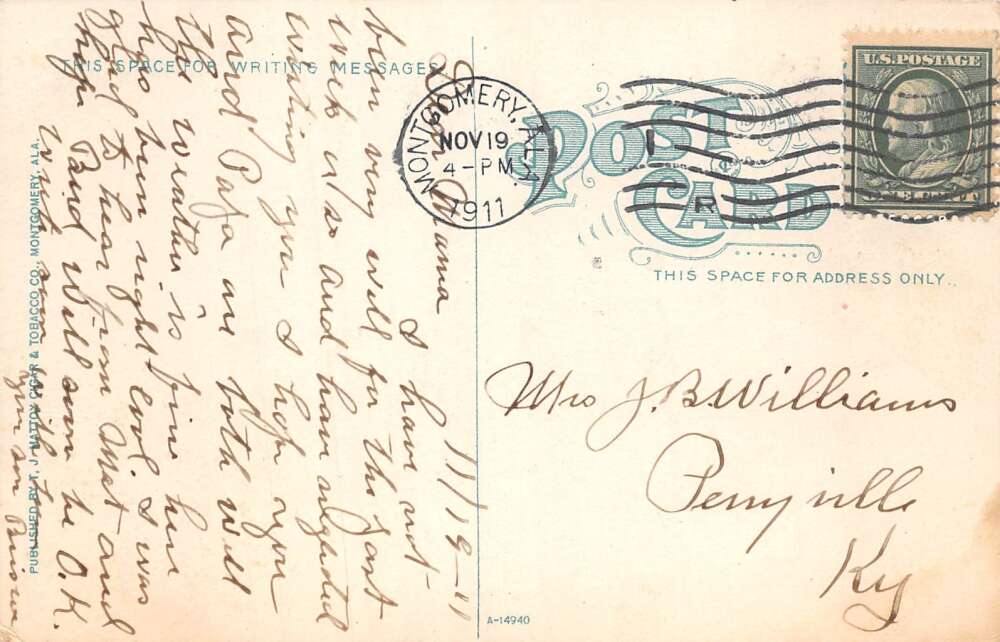 THIS SPACE FOR WRITING MESSAGES
POST CARD
THIS SPACE FOR ADDRESS ONLY.
MONTGOMERY, ALA.
NOV 19
4-PM
1911
1
R
U.S. POSTAGE
11/19-11
Mama
I have not
been very well for the past
week also and have neglected
writing you I hope you
and Papa are both well
The weather is fine here
has been right cool. I was
glad to hear from Met and
hope Baird will soon be O.K.
with
your son
Mrs J. B. Williams
Perryville
Ky
PUBLISHED BY T. J. MATTOX CIGAR & TOBACCO CO., MONTGOMERY, ALA.
A-14940